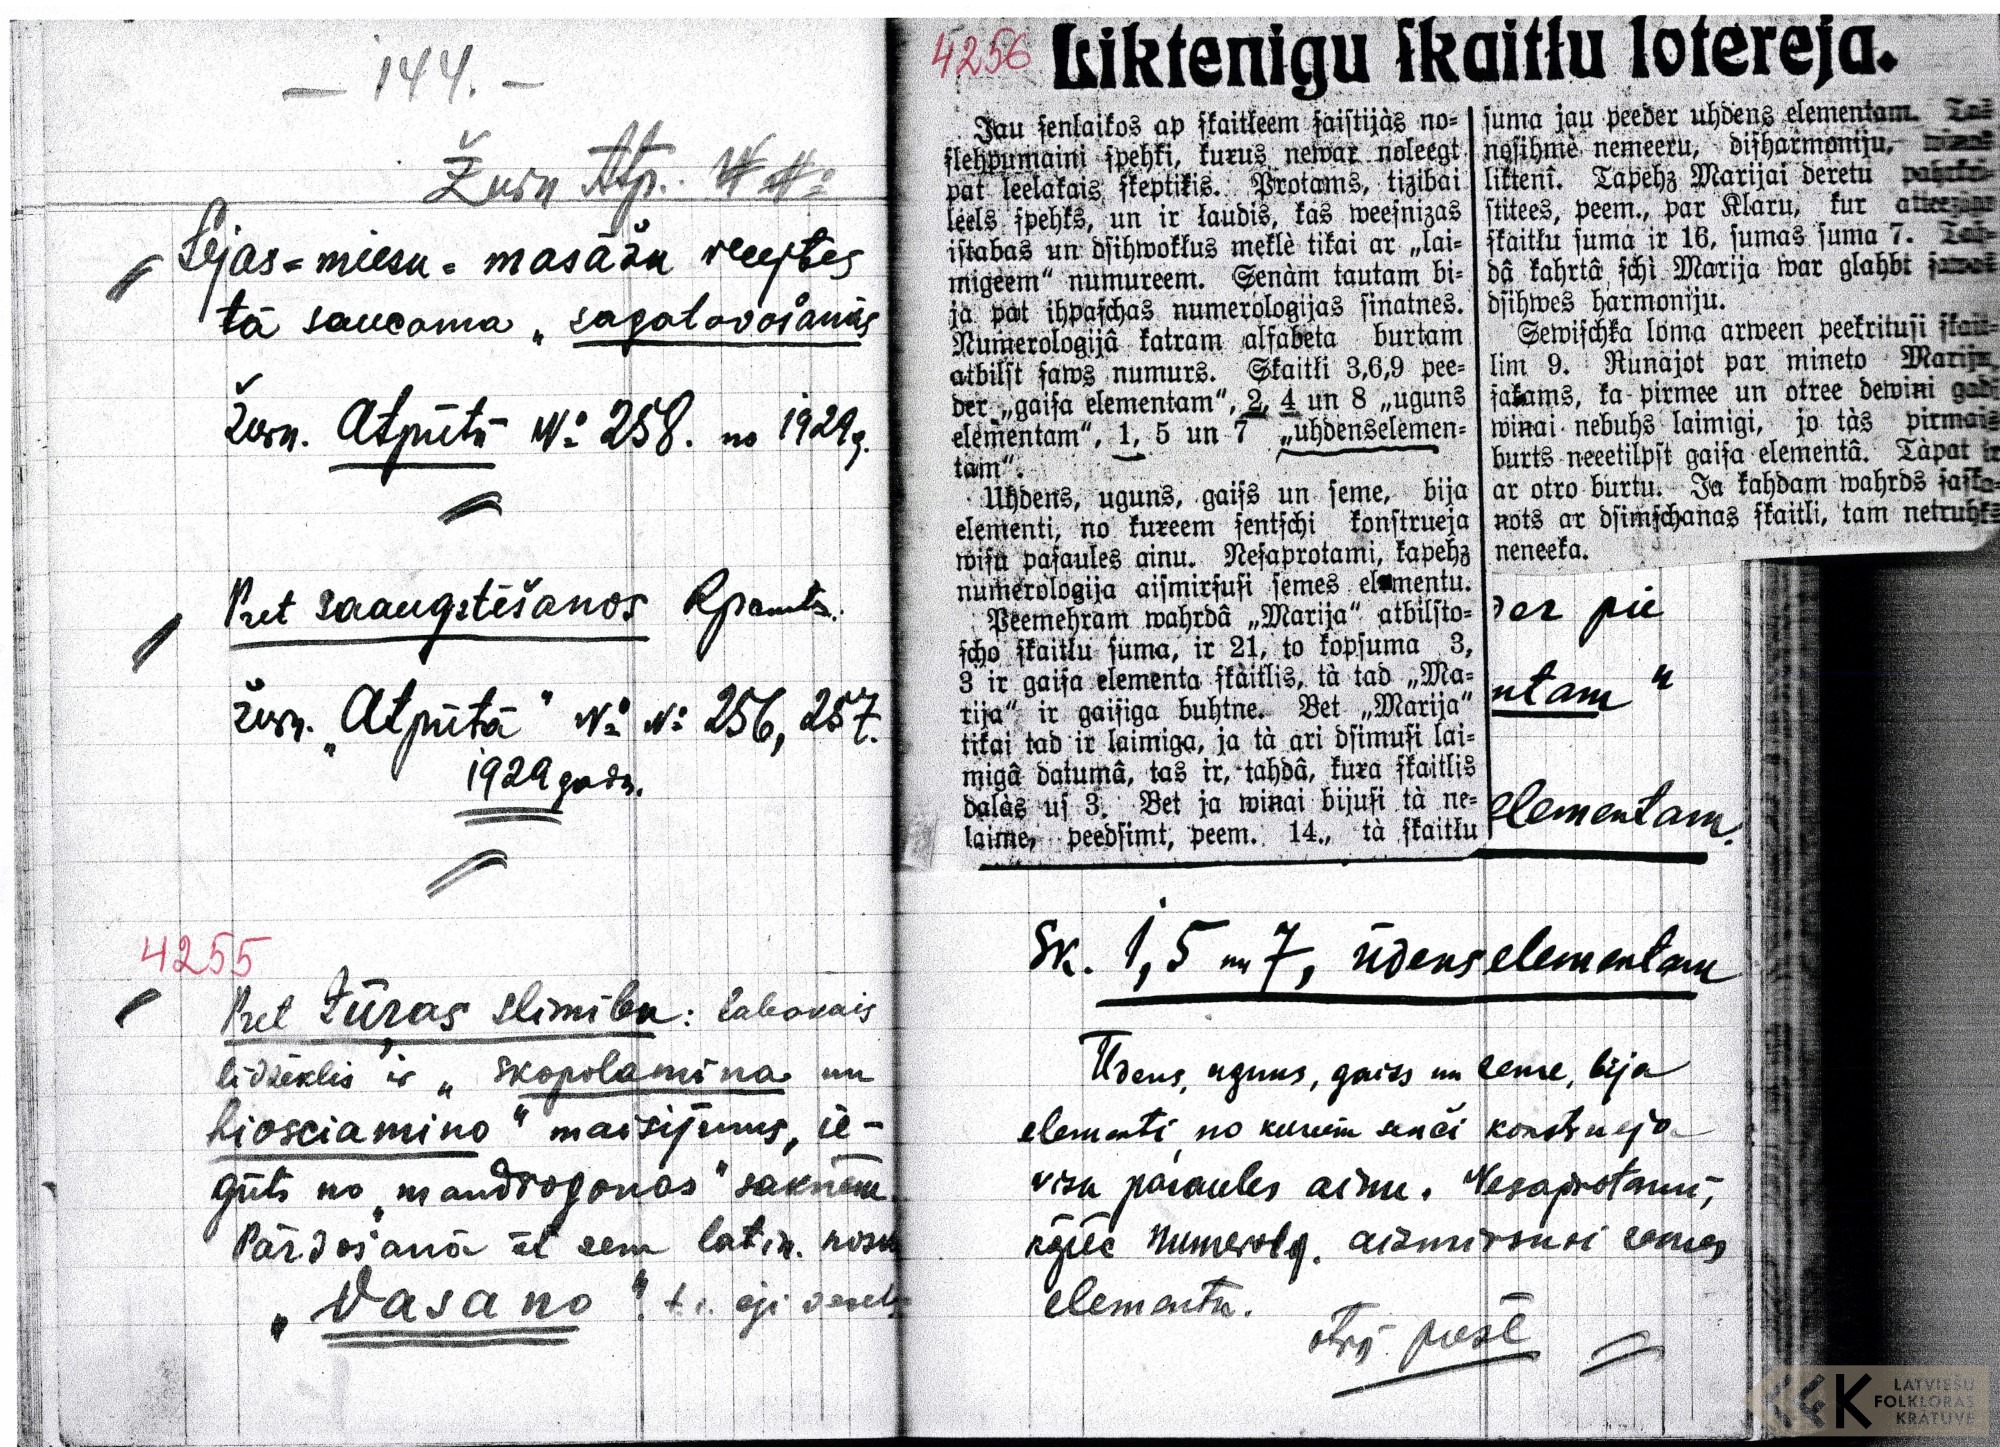 — 144. —
Žurn. Atp.
Sejas-miesu-masāžu receptes
tā saucama „sagatavošanās
Žurn. Atpūtā № 258. no 1929 g.
Pret saaugstēšanos
žurn. „Atpūtā" № № 256, 257.
1929 gada.
4255
Pret jūras slimību: labakais
līdzeklis ir „skopolamina un
hiosciamino" maisijums, ie-
gūts no „mandragoras" saknēm
Pārdošanā ēt zem latin. nosu
„Vasano" t. i. ej vesels
4256
Liktenigu ſkaitłu lotereja.
Jau ſenlaikos ap ſkaitłeem ſaiſtijàs no-
ſlehpumaini ſpehki, kuŗus newar noleegt
pat leelakais ſkeptiķis. Protams, tizibai
leels ſpehks, un ir łaudis, kas weeſnizas
iſtabas un dſihwokłus meklè tikai ar „lai-
migeem" numureem. Senàm tautam bi-
ja pat ihpaſchas numerologijas ſinatnes.
Numerologijâ katram alfabeta burtam
atbilſt ſaws numurs. Skaitłi 3,6,9 pee-
der „gaiſa elementam", 2, 4 un 8 „uguns
elementam", 1, 5 un 7 „uhdenselemen-
tam".
Uhdens, uguns, gaiſs un ſeme, bija
elementi, no kuŗeem ſentſchi konſtrueja
wiſu paſaules ainu. Neſaprotami, kapehz
numerologija aiſmirſuſi ſemes elementu.
Peemehram wahrdâ „Marija" atbilſto-
ſcho ſkaitłu ſuma, ir 21, to kopſuma 3,
3 ir gaiſa elementa ſkaitlis, tà tad „Ma-
rija" ir gaiſiga buhtne. Bet „Marija"
tikai tad ir laimiga, ja tà ari dſimuſi lai-
migâ datumâ, tas ir, tahdâ, kuŗa ſkaitlis
dalàs uſ 3. Bet ja wiņai bijuſi tà ne-
laime, peedſimt, peem. 14., tà ſkaitłu
ſuma jau peeder uhdens elementam. Tas
noſihmè nemeeru, diſharmoniju,
likteni. Tapehz Marijai deretu
ſtitees, peem., par Klaru, kur
ſkaitłu ſuma ir 16, ſumas ſuma 7. Tai-
dâ kahrtâ ſchî Marija war glahbt ſawas
dſihwes harmoniju.
Sewiſchka loma arween peekrituſi ſkait-
lim 9. Runajot par mineto Mariju
jaſakams, ka pirmee un otree dewiņi gadi
wiņai nebuhs laimigi, jo tàs pirmais
burts neeetilpſt gaiſa elementâ. Tàpat ir
ar otro burtu. Ja kahdam wahrds ſaſka-
ņots ar dſimſchanas ſkaitli, tam netruhkſ
neneeka.
der pie
ntam"
elementam.
Sk. 1, 5 un 7, ūdenselementam
Ūdens, uguns, gaiss un zeme, bija
elementi, no kuriem senči konstrueja
visu pasaules ainu. Nesaprotami,
kāpēc Numerolg. aizmirsusi zemes
elementu.
otrā pusē
LATVIEŠU
FOLKLORAS
KRĀTUVE